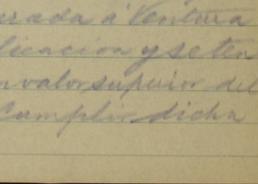 rada á Ventura
licacion y seten
n valor superior del
Cumplir dicha